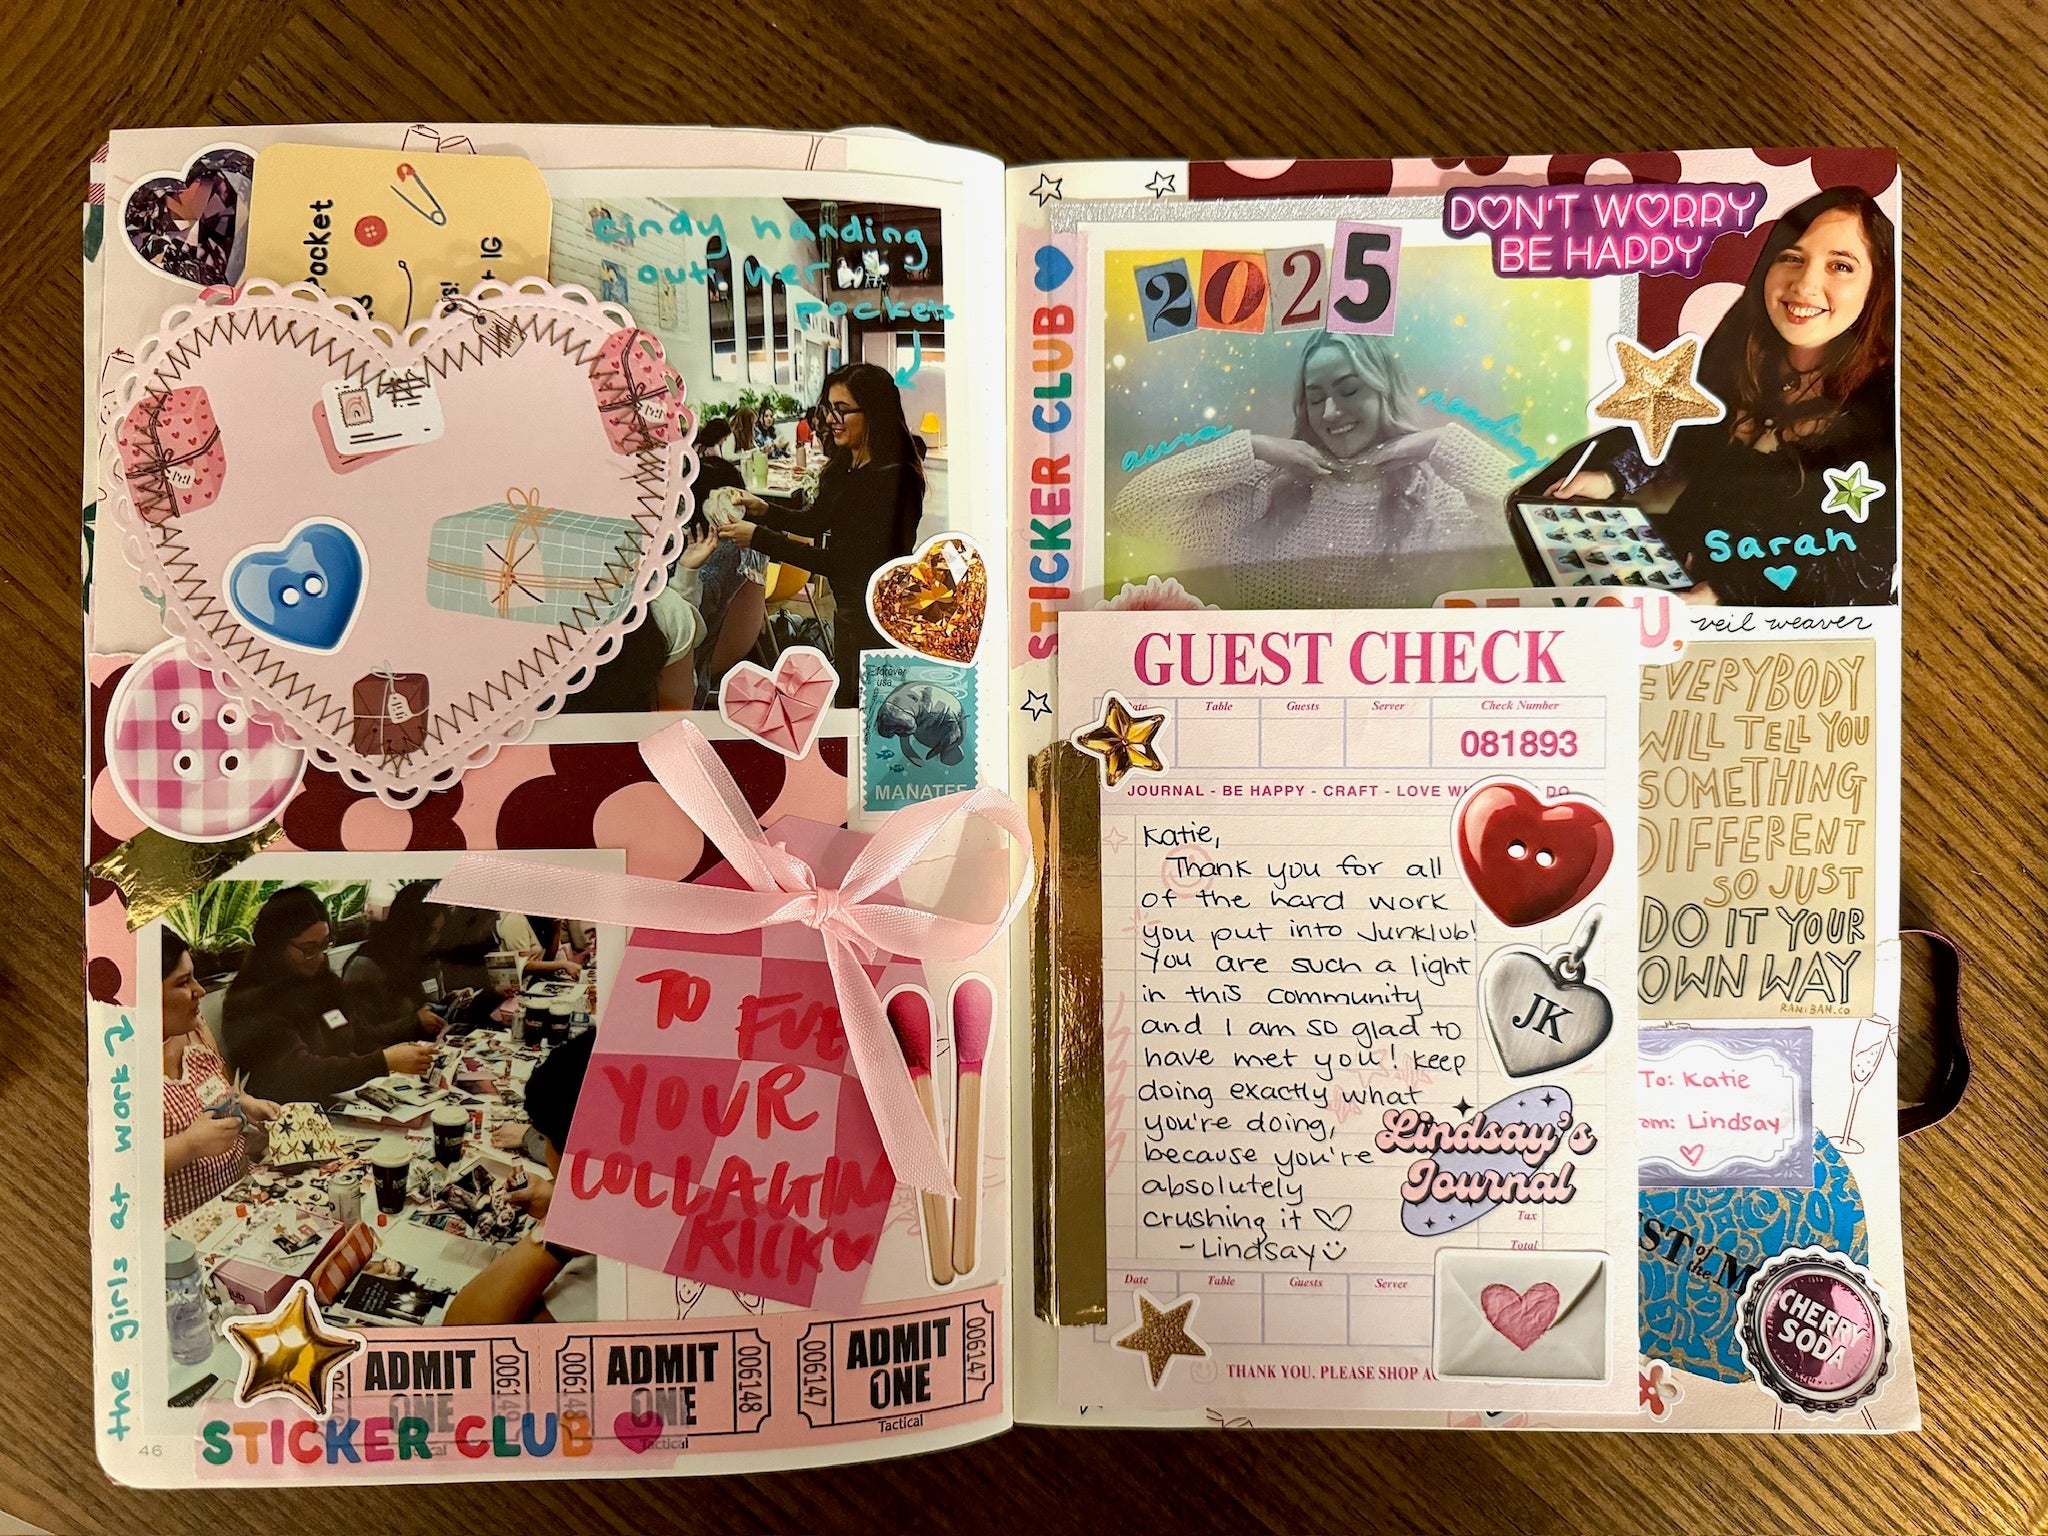 Pocket
+ IG
cindy handing
out her
pockets
forever
usa
MANATEE
TO
YOUR
KICK
the girls at work
ADMIT
ONE
006148
Tactical
ADMIT
ONE
006147
006147
Tactical
ADMIT
ONE
STICKER CLUB
46
STICKER CLUB
2025
DON'T WORRY
BE HAPPY
aura reading
Sarah
YOU,
veil weaver
GUEST CHECK
Table Guests Server Check Number
081893
JOURNAL - BE HAPPY - CRAFT - LOVE
DO
Katie,
Thank you for all
of the hard work
you put into Junklub!
You are such a light
in this community
and I am so glad to
have met you! Keep
doing exactly what
you're doing,
because you're
absolutely
crushing it
-Lindsay
JK
Lindsay's
Journal
Tax
Total
Date Table Guests Server
THANK YOU. PLEASE SHOP
EVERYBODY
WILL TELL YOU
SOMETHING
DIFFERENT
SO JUST
DO IT YOUR
OWN WAY
RANIBAN.CO
To: Katie
Lindsay
of
the
CHERRY
SODA